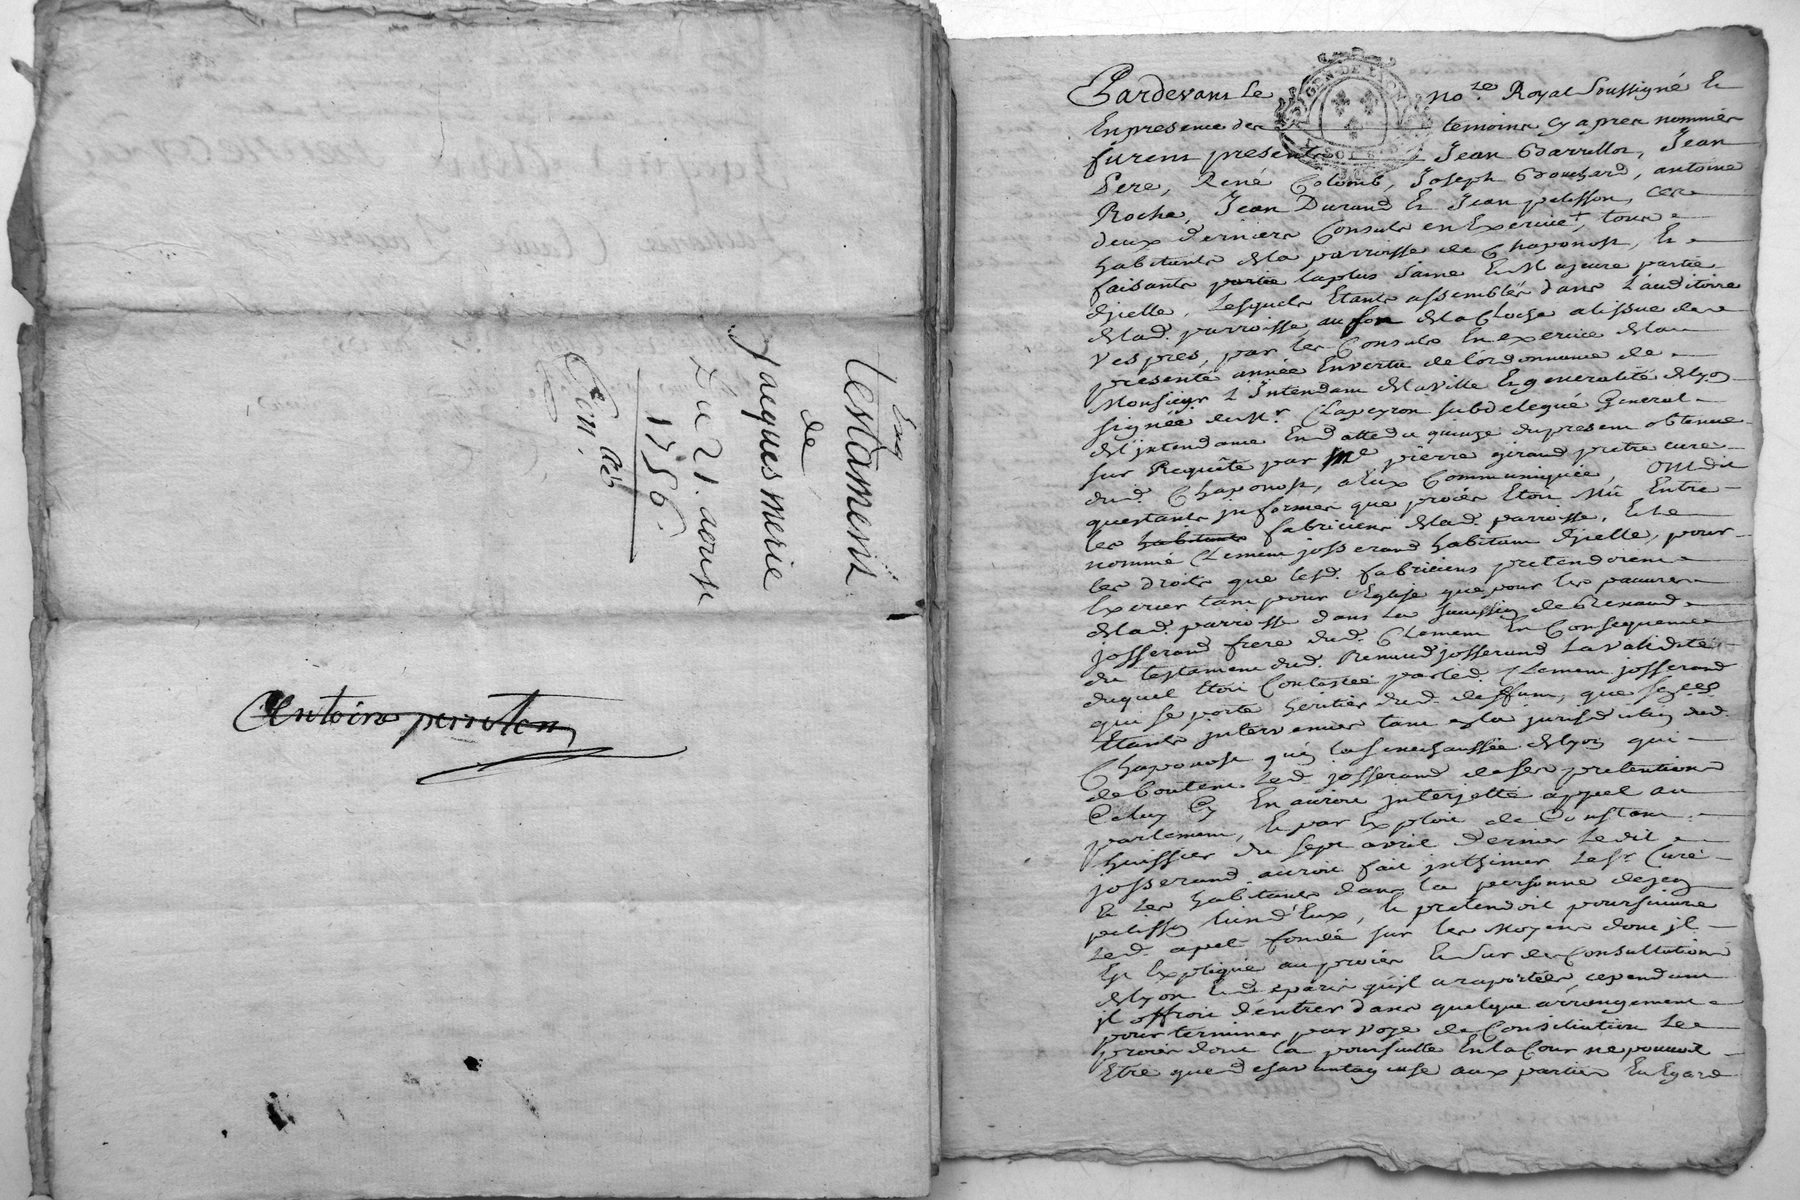 Testament
de
jacques merie
Du 21. aoust
1756.
Antoine perroton
GEN. DE LYON
Pardevant Le no.re Royal Soussigné Et
En presence des temoins cy apres nommés
furent presents Jean Barrillot, Jean
Pere, René Colomb, Joseph Bouchard, antoine
Roche, Jean Durand Et Jean pelisson, ces
deux derniers Consuls en Exercice, tous
habitants dela parroisse de Chaponost, Et
faisants partie laplus saine Et Majeure partie
dicelle, Lesquels Etants assemblés dans L'auditoire
delad. parroisse, au son dela Cloche alissue des
Vespres, par les Consuls En exercice dela
presente année En vertu de lordonnance de
Monsieur L'Intendant delaville Et generalité delyon
signée de Mr. Clapeyron subdelegué General
del'intendance En datte du quinze du present obtenue
sur Requête par Me pierre girard pretre curé
dud. Chaponost, a Eux Communiquée, ont dit
questants informés que procès Etoit Mû Entre
les habitants fabriciens delad. parroisse, Et le
nommé Clement josserand habitant dicelle, pour
les droits que lesd. fabriciens pretendoient
Exercer tant pour l'Eglise que pour les pauvres
delad. parroisse dans La succession de Renaud
josserand frere dud. Clement En Consequence
du testament dud. Renaud josserand La validité
duquel Etoit Contestée par led. Clement josserand
qui se porte heritier dud. deffunt, que
Etants intervenus tant en la jurisdiction dud.
Chaponost qu'en la senechaussée delyon qui
deboutent Led. josserand de ses pretentions
Celuy Cy En auroit interjetté appel au
parlement, Et par Exploit de Constant
huissier du sept avril dernier Ledit
josserand auroit fait inthimer Le Sr. Curé
Et Les habitants dans la personne de jean
pelisson lun d'Eux, Et pretendoit poursuivre
Led. apel fondé sur les Moyens dont il
Est Expliqué au procès Et sur des Consultations
delyon Et de paris qu'il a raportées cependant
il offroit d'entrer dans quelque arrengement
pour terminer par voye de Consiliation Le
procès dont la poursuitte En la Cour ne pouvoit
Etre que desavantageuse aux parties Eu Egard